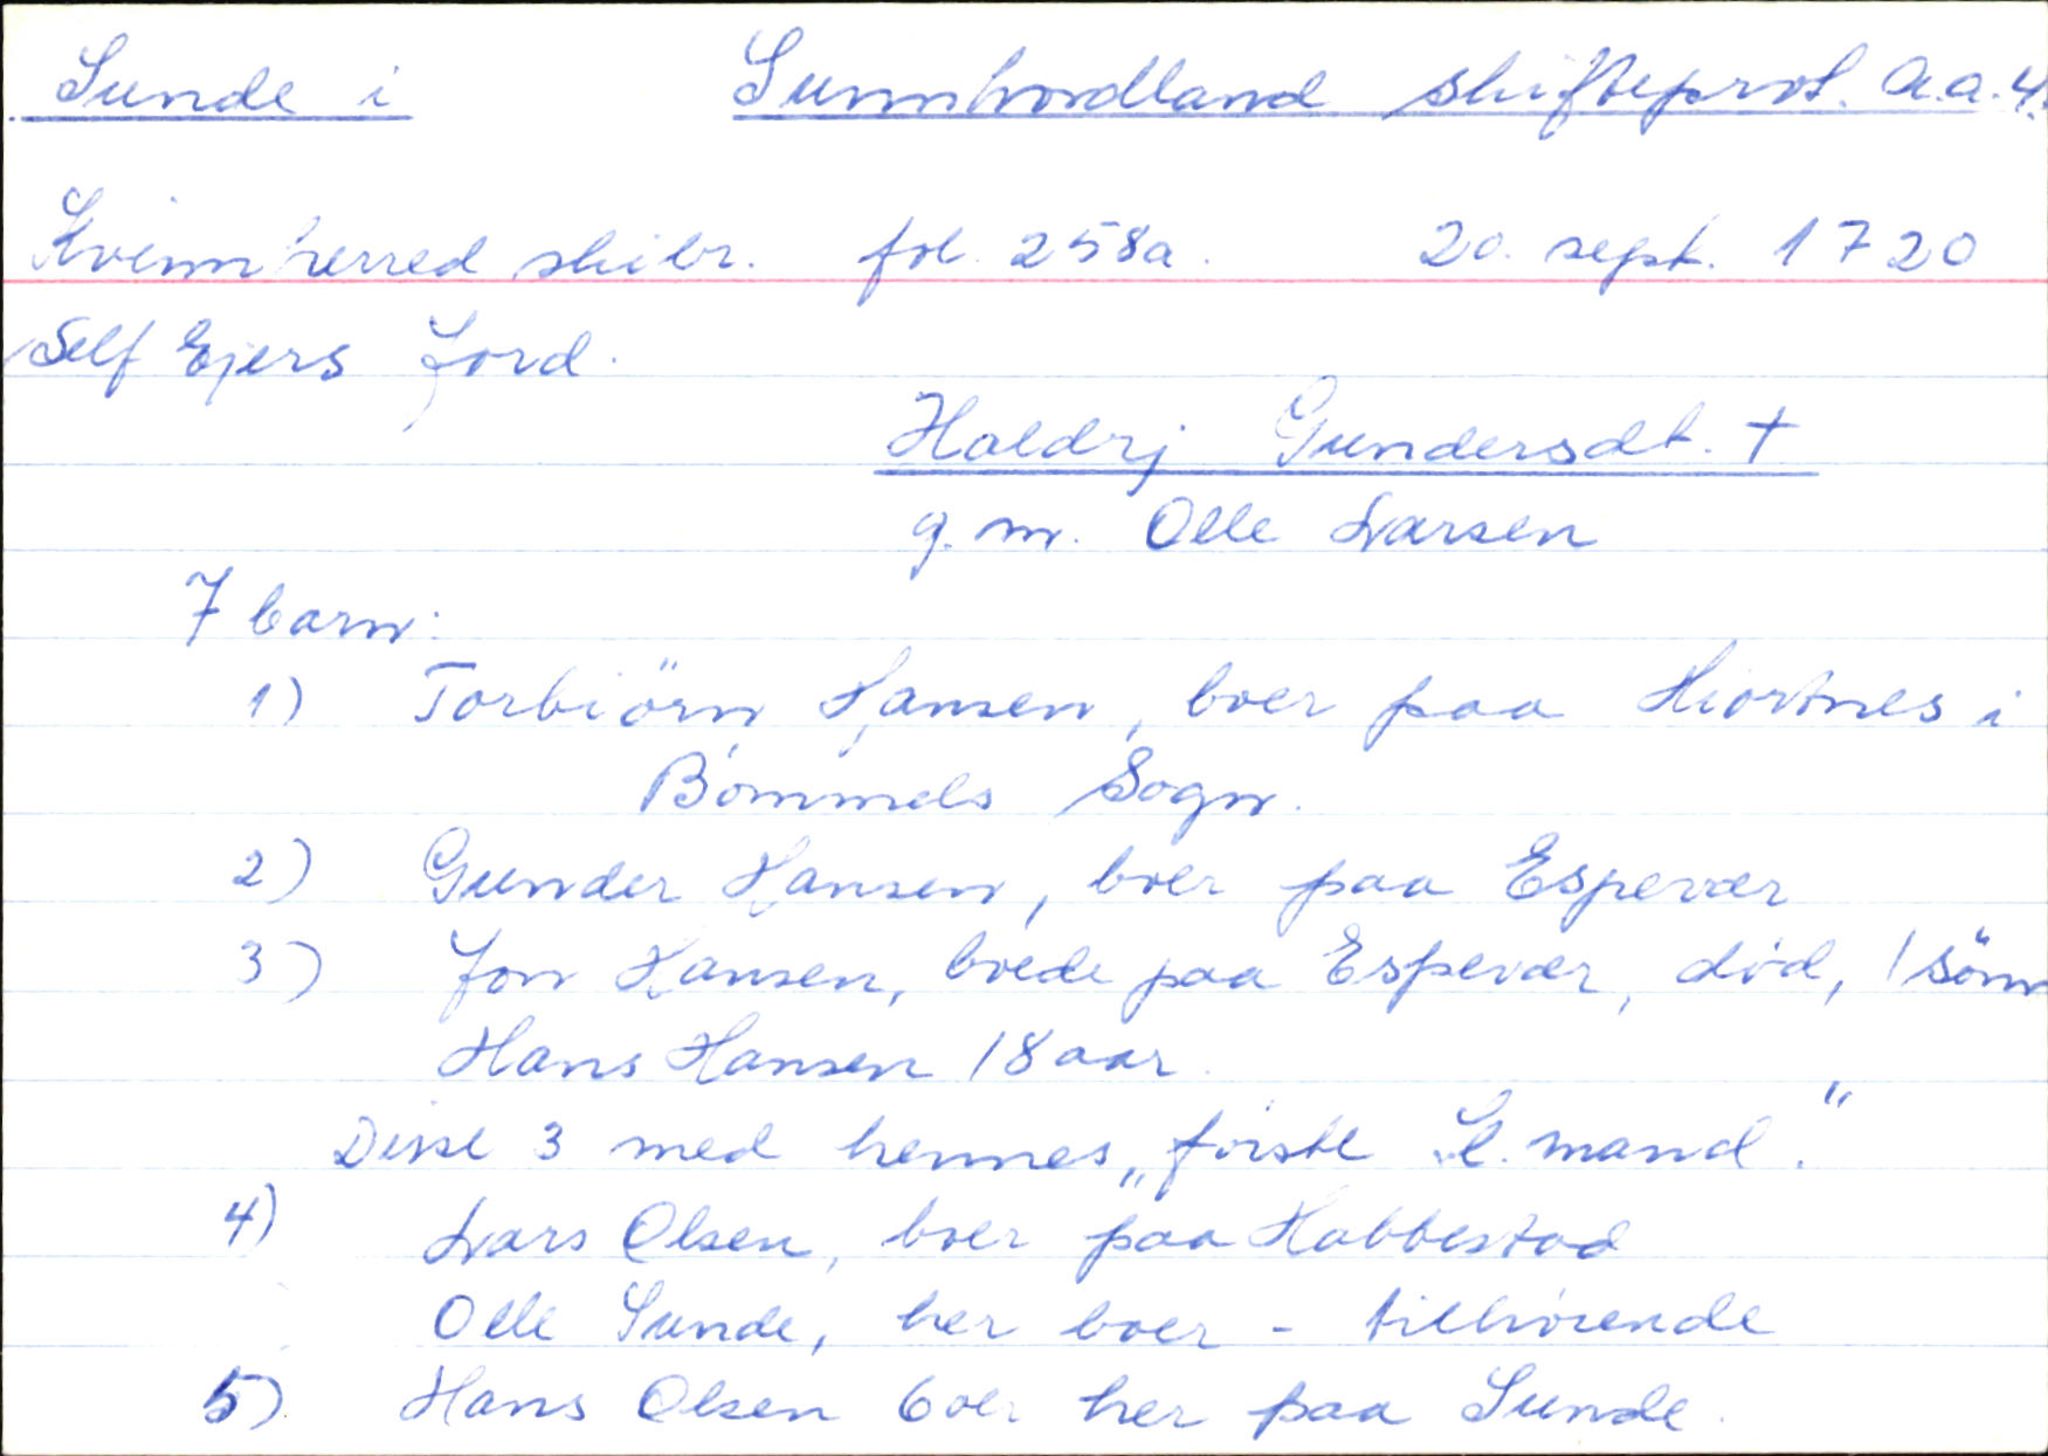 Sunde i Sunnhordland skifteprot. A.a.4.
Kvinnherred skibr. fol. 258a. 20. sept. 1720
Self Ejers Jord.
Haldrj Gundersdt. †
g.m. Olle Larsen
7 barn:
1) Torbiörn Hansen, boer paa Hiortnes i
Bømmels Sogn.
2) Gunder Hansen, boer paa Espevær
3) Jon Hansen, boede paa Espevær, död, 1 sönn
Hans Hansen 18 aar.
Disse 3 med hennes „første S. mand."
4) Lars Olsen, boer paa Habbestad
Olle Sunde, her boer - tilhørende
5) Hans Olsen boer her paa Sunde.